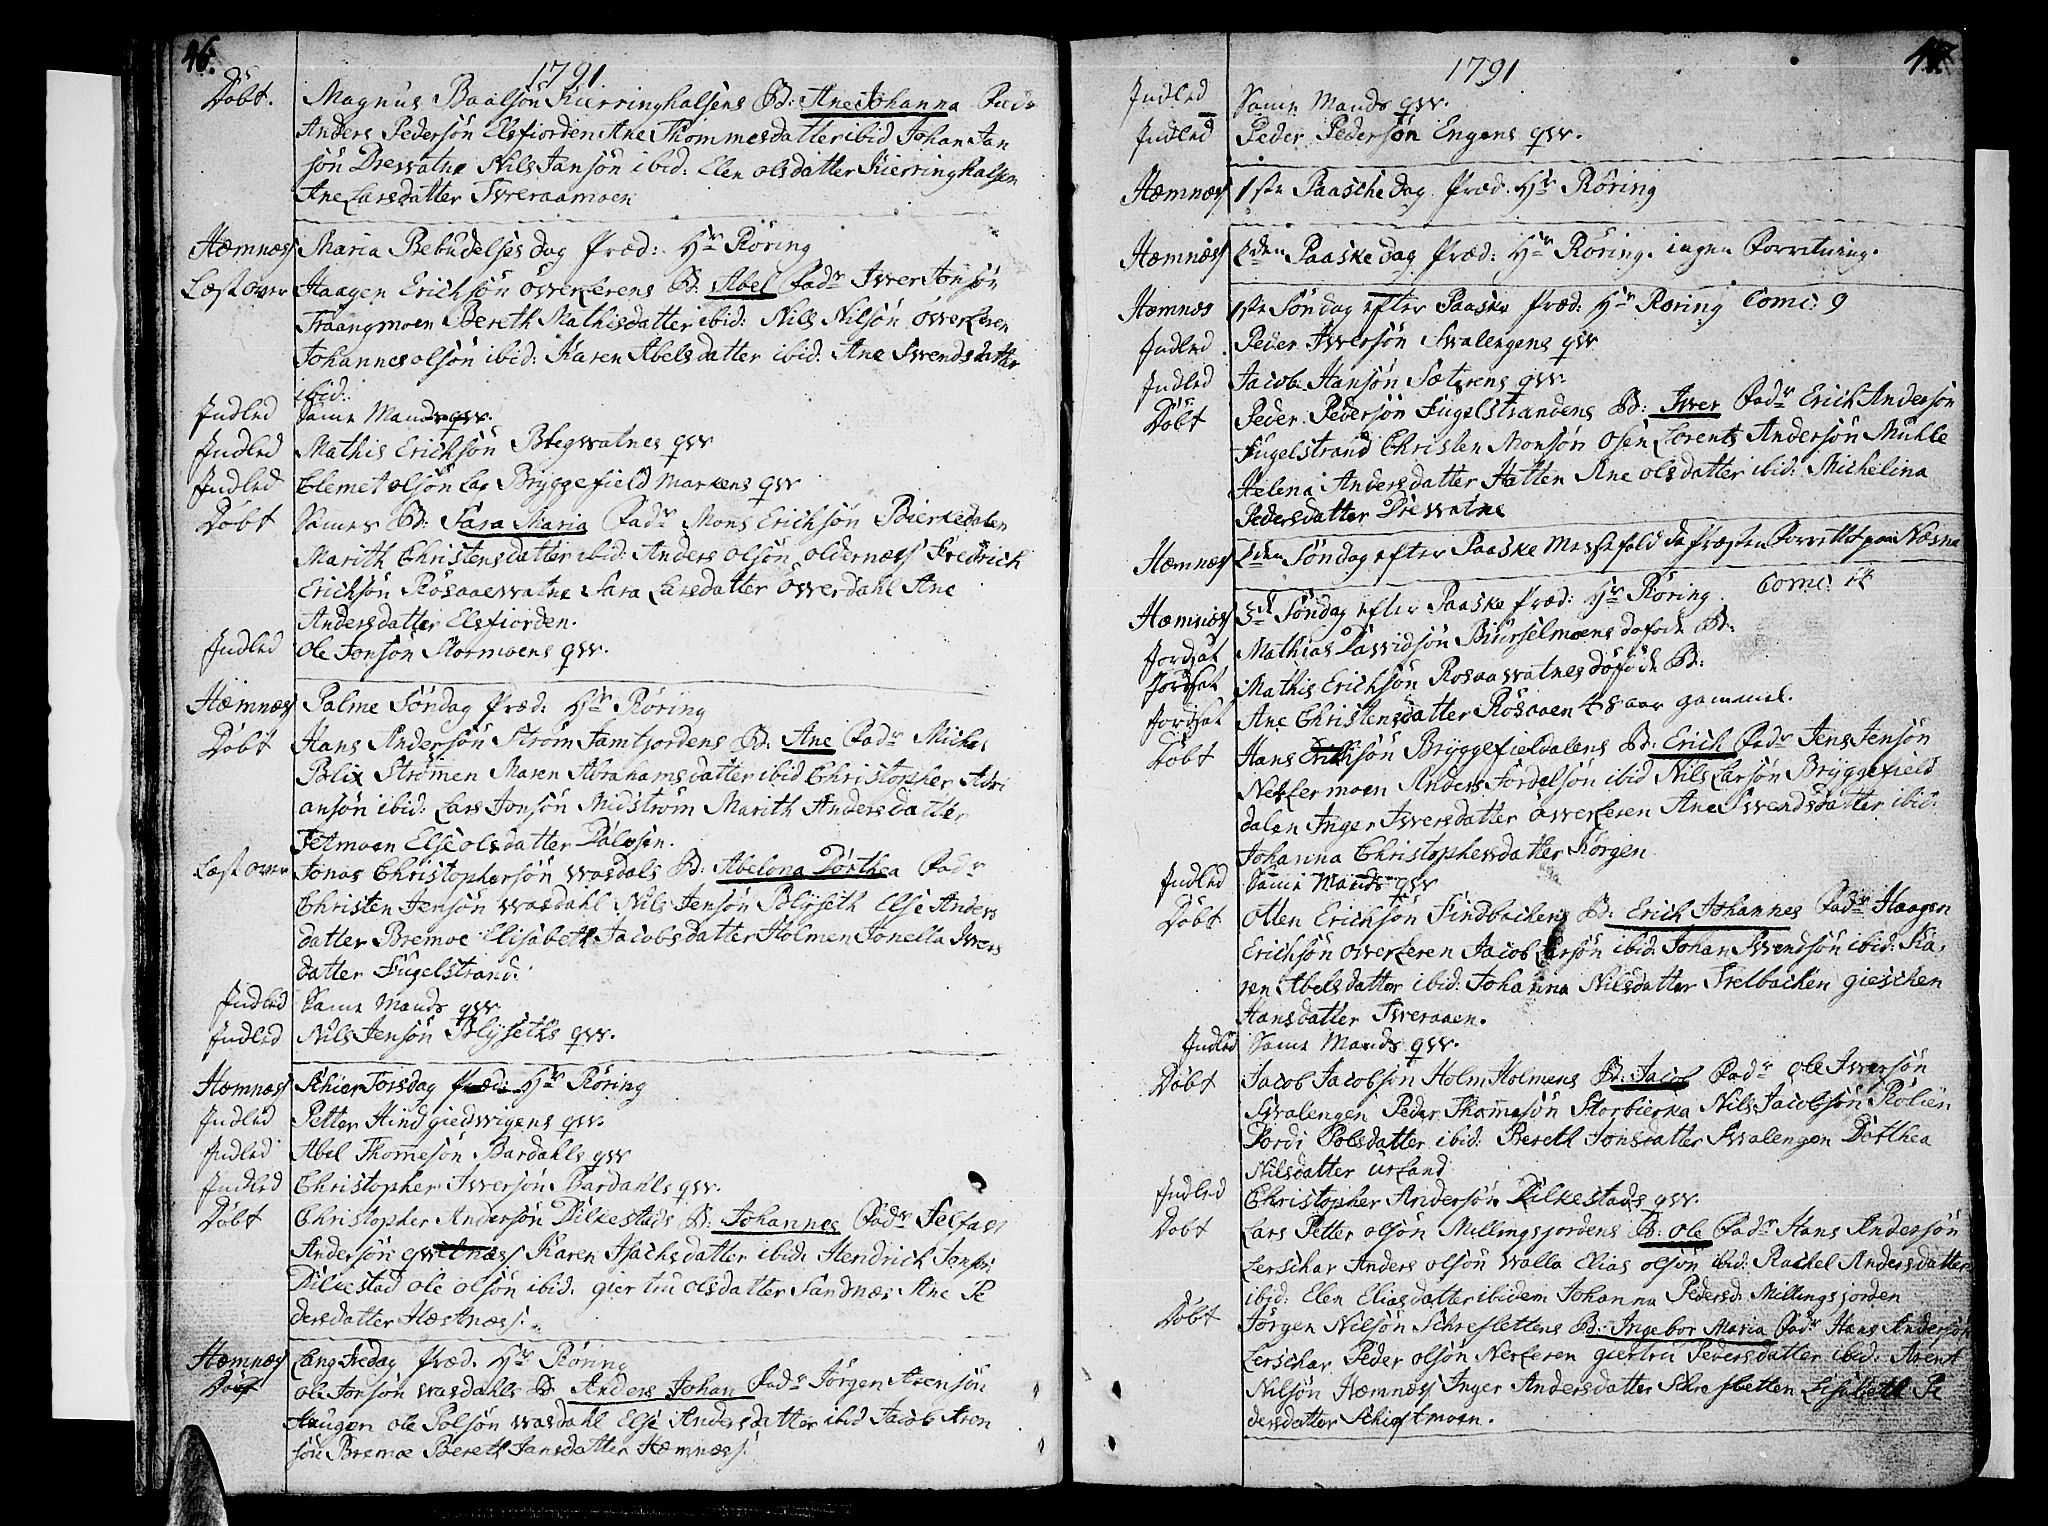 46.
1791
Döbt. Magnus Baalsön Kierringhalsens B: Ane Johanna Fadr
Anders Pedersön Elsfiorden Ane Thommesdatter ibid Johan Jan
sön Drewatne Nils Jansön ibid: Elen olsdatter Kierringhalsen
Ane Larsdatter Tweraamoen
Hæmnæs Maria Bebudelses dag Præd: Hr Röring
Læst over Haagen Erichsön Owerlerens B: Abel Fadr Iwer Jonsön
Traangmoen Bereth Mathisdatter ibid: Nils Nilsön öwerleren
Johannes olsön ibid: Karen Abelsdatter ibid: Ane Swendsdatter
ibid:
Indled Same Mands qvv.
Indled Mathis Erichsön Blegwatnes qvv
Indled Clemet olsön Lap Bryggefield Markens qvv
Döbt Sames B: Sara Maria Fadr Mons Erichsön Bierkedalen
Marith Christensdatter ibid: Anders olsön oldernæss Fredrich
Erichsön Rösaaewatne Sara Larsdatter öwerdahl Ane
Andersdatter Elsfiorden.
Indled Ole Jonsön Stormoens qvv.
Hæmnæs Palme Söndag Præd: Hr Röring
Döbt Hans Andersön Ström Jamtjordens B: Ane Fadr Michel
Blix Strömen Maren Abrahamsdatter ibid Christopher Adri
ansön ibid: Lars Jonsön Midström Marith Andersdatter
Tetmoen Else olsdatter Dalosen.
Læst over Jonas Christophersön Wasdals B: Abelona Dorthea Fadr
Christen Jensön Wasdahl Nils Jensön Blyseth Else Anders
datter Bremoe Elisabeth Jacobsdatter Holmen Jonella Iwers
datter Fugelstrand.
Indled Same Mands qvv.
Indled Nils Jensön Blyseths qvv.
Hæmnæs Schier Torsdag Præd: Hr Röring
Indled Petter Hind giedwigens qvv.
Indled Abel Thomesön Bardahls qvv
Indled Christopher Iwersön Bardahls qvv.
Döbt Christopher Andersön Dilkestads B: Johannes Fadr Selfast
Andersön Karen Isachsdatter ibid: Hendrich Jonsön
Dilkestad ole olsön ibid: giertru olsdatter Sandnæs Ane Pe
dersdatter Hæstnæss.
Hæmnæs Lang Fredag Præd. Hr Röring
Döbt ole Jonsön Wasdahls B: Anders Johan Fadr Jörgen Arensön
Haugen ole Polsön Wasdahl Else Andersdatter ibid Jacob Aron
sön Bremoe Bereth Jansdatter Hæmnæss.
47.
1791
Indled Same Mands qvv.
Indled Peder Pedersön Engens qvv.
Hæmnæs 1ste Paasche dag Præd. Hr Röring
Hæmnæs 2den Paaske dag Præd: Hr Röring. ingen Forretning.
Hæmnæs 1ste Söndag efter Paaske Præd: Hr Röring Comc: 9
Indled. Peder Iwersön Swalengens qvv
Indled Jacob Hansön Sæterens qvv.
Döbt Peder Pedersön Fugelstrandens B: Iwer Fadr Erich Andersön
Fugelstrand Christen Monsön Osen Lorents Andersön Muhle
Helena Andersdatter Hatten Ane olsdatter ibid: Michelina
Pedersdatter Drewatne
Hæmnæs 2den Söndag efter Paaske Messefald da Præsten Forrettet paa Næsna
Hæmnæs 3d Söndag efter Paaske Præd: Hr Röring. Comc: 14
Jordsat Mathias Dawidsön Biurselmoens döföd B:
Jordsat Mathis Erichsön Rosaawatnes döföd B:
Jordsat Ane Christensdatter Rösaaen 48 aar gammel.
Döbt Hans Erichsön Bryggefieldalens B: Erich Fadr Jens Jensön
Nerlermoen Anders Fordelsön ibid Nils Larsön Bryggefield
dalen Inger Iwersdatter öwerleren Ane Swendsdatter ibid:
Johanna Christophersdatter Körgen
Indled Same Mands qvv
Döbt Otten Erichsön Findbachens B: Erich Johannes Fadr Haagen
Erichsön öwerleren Jacob Larsön ibid: Johan Swendsön ibid: Ka,
ren Abelsdatter ibid: Johanna Nilsdatter Trelbachen gieschen
Hansdatter Tweraaen.
Indled Same Mands qvv.
Döbt Jacob Jacobsön Holm Holmens B: Jacob Fadr Ole Iwersön
Swalengen Peder Thomesön Storbierka Nils Jacobsön Rölien
Dordi Polsdatter ibid: Bereth Jonsdatter Swalengen Dorthea
Nilsdatter Urland
Indled Christopher Andersön Dilkestads qvv.
Döbt Lars Petter olsön Millingsjordens B: Ole Fadr Hans Andersön
Lerschar Anders olsön Walla Elias olsön ibid: Rachel Andersdatter
ibid: Elen Eliasdatter ibidem Johanna Pedersd: Millingsjorden
Döbt Jörgen Nilsön Schreslettens B: Ingebor Maria Fadr Hans Andersön
Lerschar Peder olsön Nerleren giertru Pedersdatter ibid: Arent
Nilsön Hæmnæss Inger Andersdatter Schresletten Lisebeth Pe
dersdatter Schiestmoen.